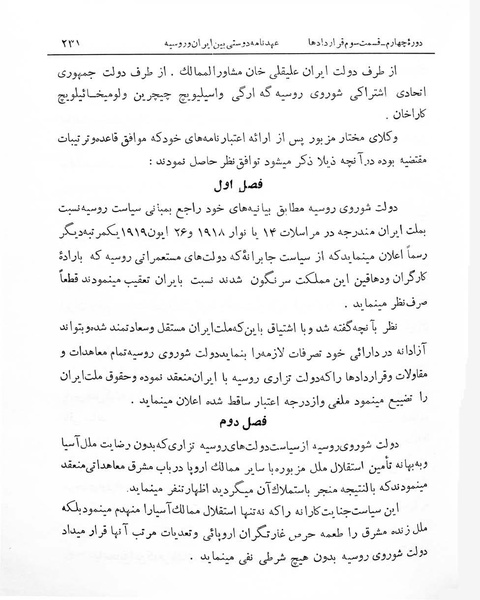 دورهٔ چهارم - قسمت سوم قراردادها عهدنامه دوستی بین ایران و روسیه ۲۳۱
از طرف دولت ایران علیقلی خان مشاورالممالك . از طرف دولت جمهوری
اتحادی اشتراکی شوروی روسیه گه ارگی واسیلیویچ چیچرین ولومیخائیلویچ
کاراخان .
وکلای مختار مزبور پس از ارائه اعتبارنامه‌های خود که موافق قاعده و ترتیبات
مقتضیه بوده در آنچه ذیلا ذکر میشود توافق نظر حاصل نمودند :
فصل اول
دولت شوروی روسیه مطابق بیانیه‌های خود راجع بمبانی سیاست روسیه نسبت
بملت ایران مندرجه در مراسلات ۱۴ یا نوار ۱۹۱۸ و ۲۶ ایون ۱۹۱۹ یکمرتبه دیگر
رسماً اعلان مینماید که از سیاست جابرانهٔ که دولت‌های مستعمراتی روسیه که بارادهٔ
کارگران ودهاقین این مملکت سرنگون شدند نسبت بایران تعقیب مینمودند قطعاً
صرف‌نظر مینماید .
نظر بآنچه گفته شد و با اشتیاق باین که ملت ایران مستقل وسعادتمند شده وبتواند
آزادانه در دارائی خود تصرفات لازمه را بنماید دولت شوروی روسیه تمام معاهدات و
مقاولات وقراردادها را که دولت تزاری روسیه با ایران منعقد نموده وحقوق ملت ایران
را تضییع مینمود ملغی واز درجه اعتبار ساقط شده اعلان مینماید .
فصل دوم
دولت شوروی روسیه از سیاست دولت‌های روسیه تزاری که بدون رضایت ملل آسیا
وبه بهانه تأمین استقلال ملل مزبوره با سایر ممالك اروپا در باب مشرق معاهداتی منعقد
مینمودند که بالنتیجه منجر باستملاك آن میگردید اظهار تنفر مینماید .
این سیاست جنایت کارانه را که نه تنها استقلال ممالك آسیا را منهدم مینمود بلکه
ملل زنده مشرق را طعمه حرص غارتگران اروپائی وتعدیات مرتب آنها قرار میداد
دولت شوروی روسیه بدون هیچ شرطی نفی مینماید .